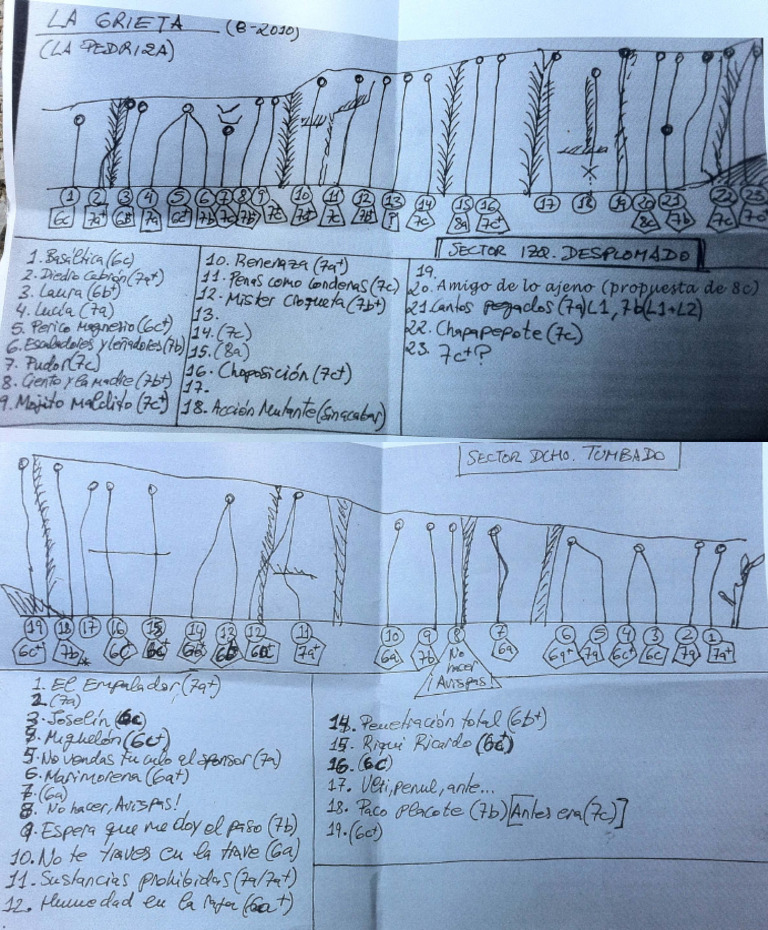 LA GRIETA (8-2010)
(LA PEDRIZA)
1 2 3 4 5 6 7 8 9 10 11 12 13 14 15 16 17 18 19 20 21 22 23
6c 7a+ 6B+ 7a 6c+ 7b 7c 7b+ 7c+ 7a+ 7c 7b+ ? 7c 8a 7c+ 8c 7b 7c 7c+
SECTOR IZQ. DESPLOMADO
1. Basáltica (6c)
2. Diedro Cabrón (7a+)
3. Laura (6b+)
4. Lucía (7a)
5. Perico Magnesio (6c+)
6. Escaladores y leñadores (7b)
7. Pudor (7c)
8. Ciento y la Madre (7b+)
9. Mojito Maldito (7c+)
10. Renenaza (7a+)
11. Penas como condenas (7c)
12. Mister Croqueta (7b+)
13.
14. (7c)
15. (8a)
16. Choposición (7c+)
17.
18. Acción Mutante (Sin acabar)
19.
20. Amigo de lo ajeno (propuesta de 8c)
21. Cantos pegados (7a) L1, 7b (L1+L2)
22. Chapapepote (7c)
23. 7c+?
SECTOR DCHO. TUMBADO
19 18 17 16 15 14 13 12 11 10 9 8 7 6 5 4 3 2 1
6c+ 7b 6c 6c+ 6b+ 6b 6a+ 7a+ 6a 7b No hacer ¡Avispas! 6a 6a+ 7a 6c+ 6c 7a 7a+
1. El Empalador (7a+)
2. (7a)
3. Joselín (6c)
4. Miguelón (6c+)
5. No vendas tu culo al sponsor (7a)
6. Marimorena (6a+)
7. (6a)
8. No hacer, Avispas!
9. Espera que me doy el paso (7b)
10. No te traves en la llave (6a)
11. Sustancias prohibidas (7a/7a+)
12. Humedad en la raja (6a+)
14. Penetración total (6b+)
15. Riqui Ricardo (6c+)
16. (6c)
17. Ulti, penul, ante...
18. Paco Placote (7b) [Antes era (7c)]
19. (6c+)